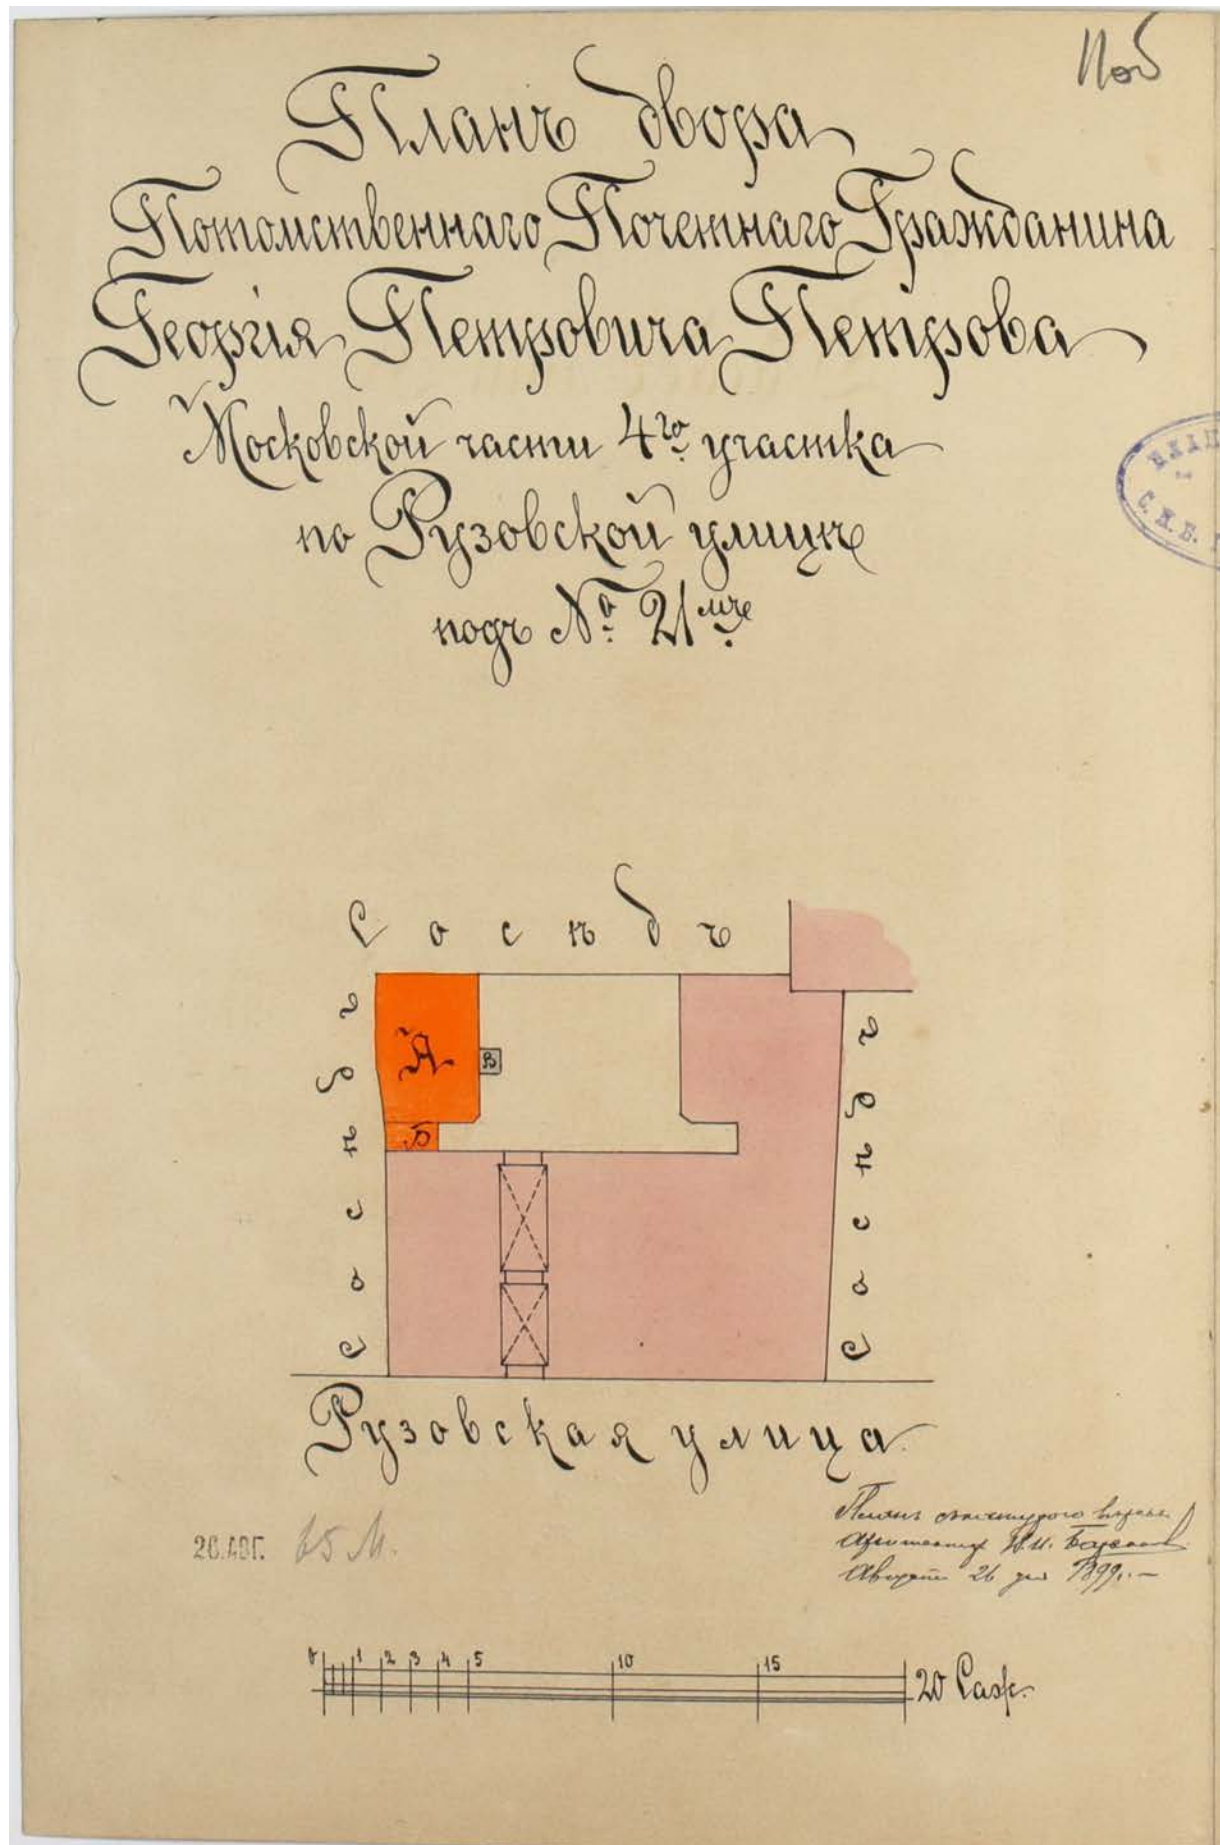 Планъ двора
Потомственнаго Почетнаго Гражданина
Георгія Петровича Петрова
Московской части 4го участка
по Рузовской улицѣ
подъ № 21мъ
С.П.Б.
Сосѣдъ
Сосѣдъ
А
В
Б
Сосѣдъ
Рузовская улица
26 АВГ.
Планъ
Архитекторъ
Августа 26 дня 1899г.
0 1 2 3 4 5 10 15 20 Саж.